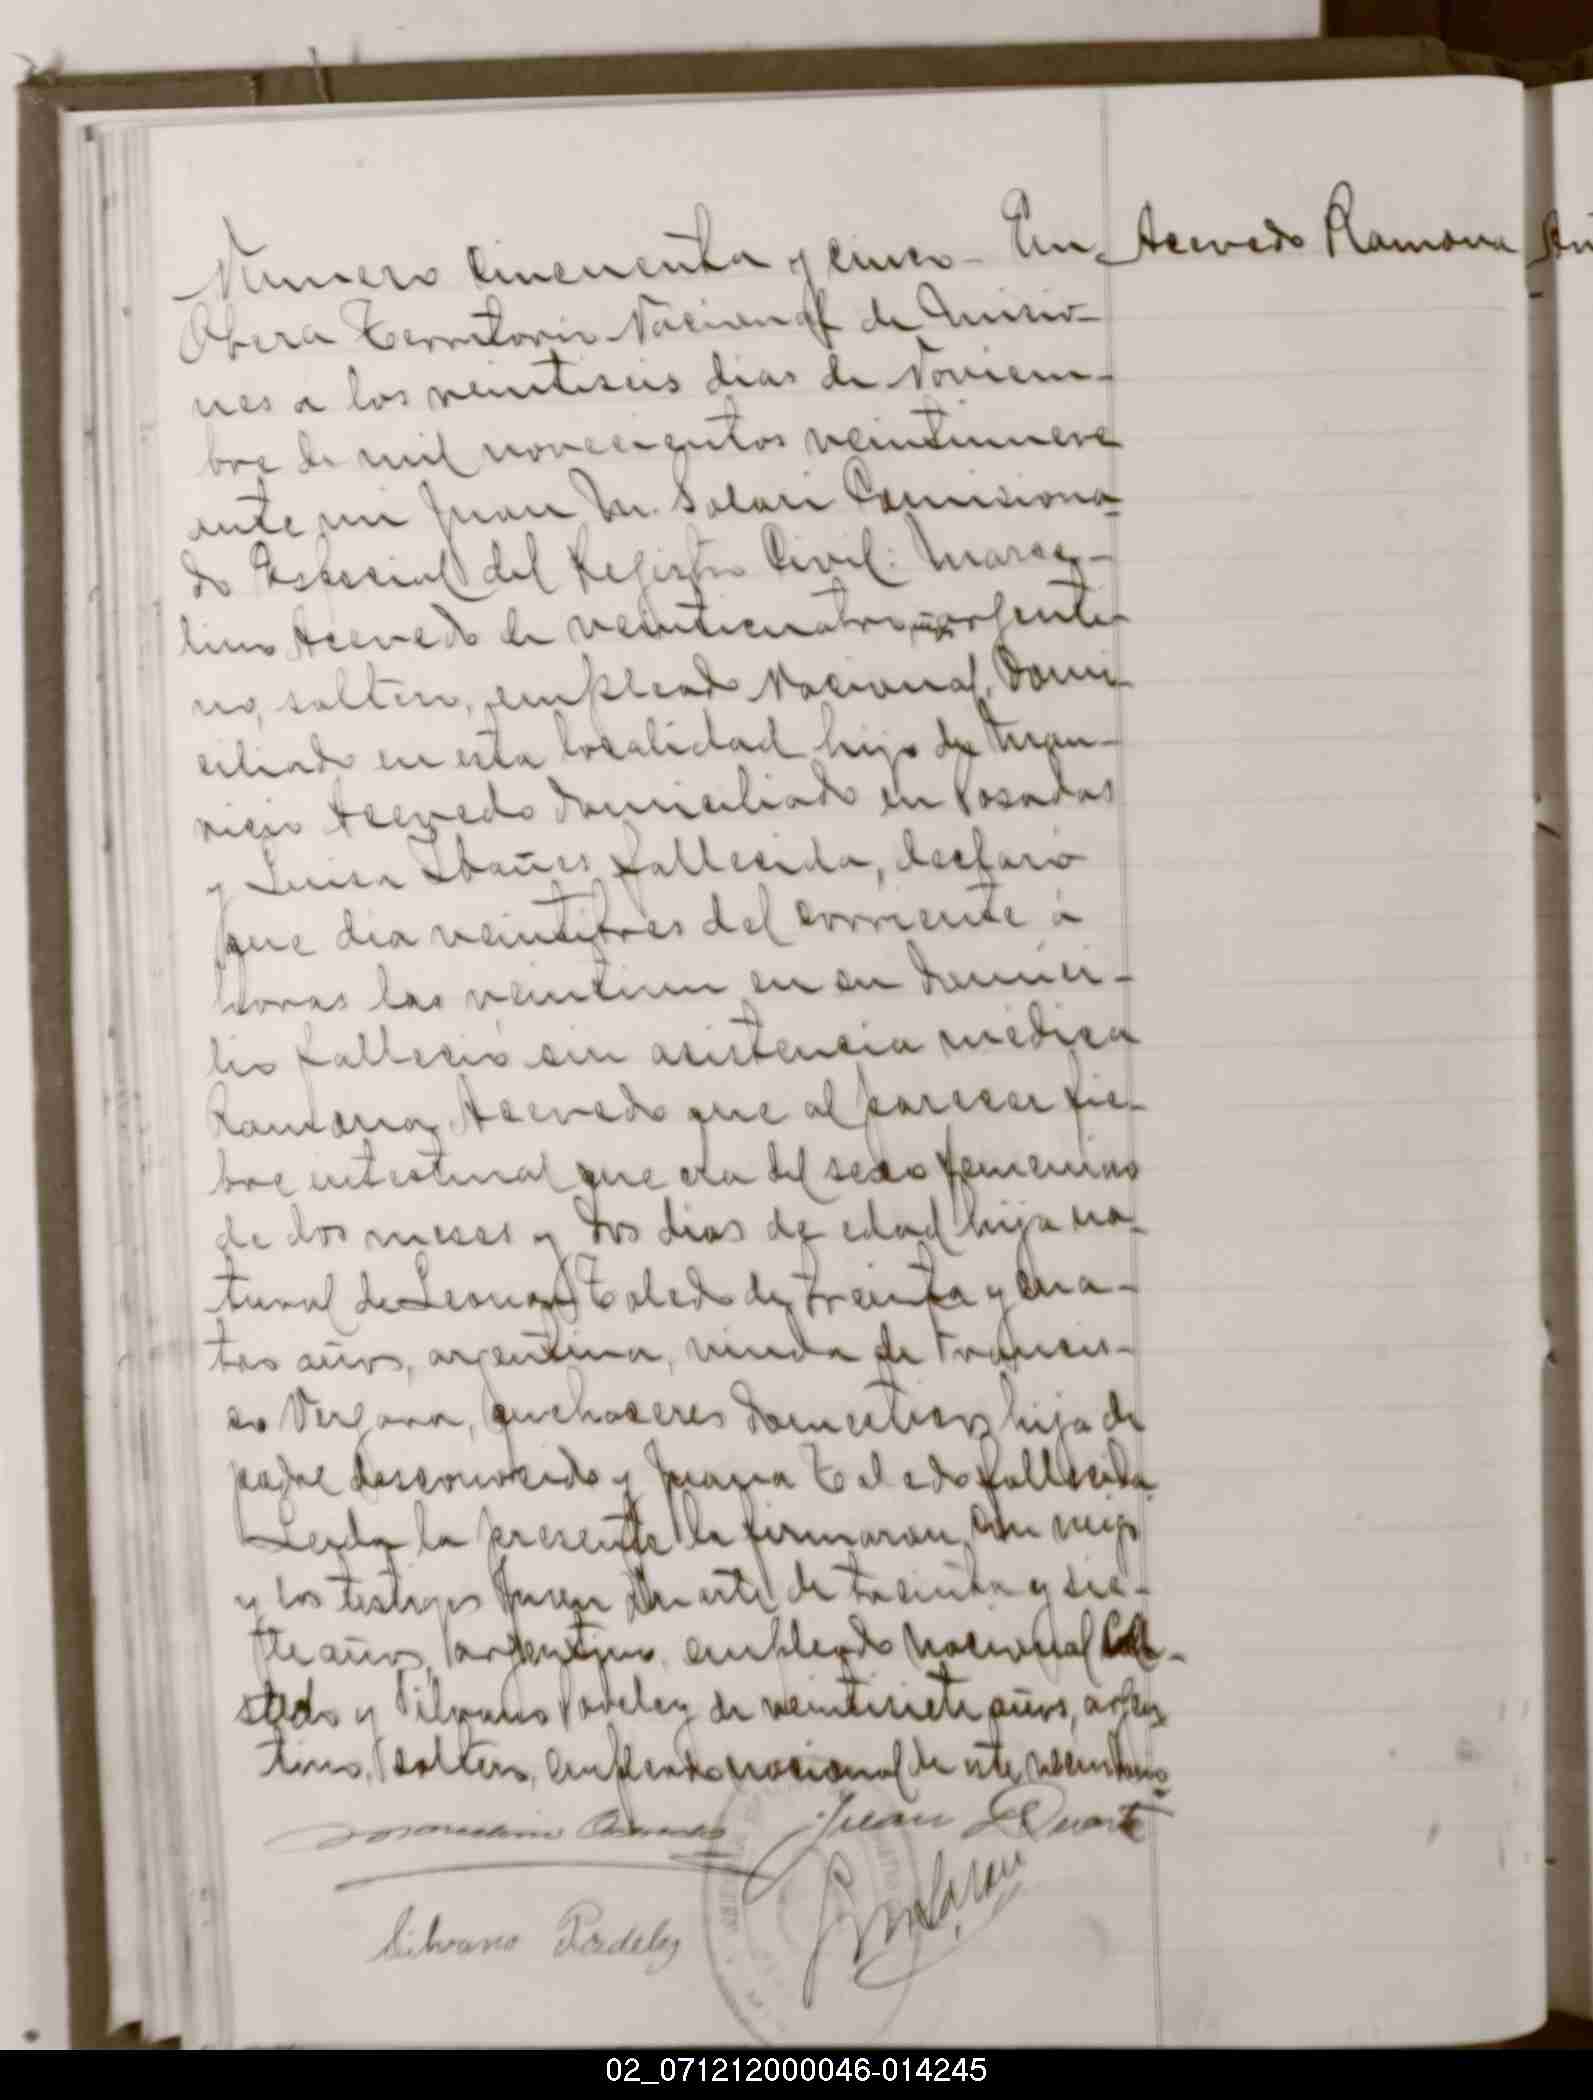 Numero cincuenta y cinco - En
Acevedo Ramona
Obera Territorio Nacional de Misio-
nes a los veintiseis dias de Noviem-
bre de mil novecientos veintinueve
ante mi Juan M. Solari Comisiona-
do Especial del Registro Civil: Marce-
lino Acevedo de veinticuatro argenti-
no, soltero, empleado Nacional, Domi-
ciliado en esta localidad hijo de Mau-
ricio Acevedo domiciliado en Posadas
y Luisa Ibañes fallecida, declaró
que dia veintitres del corriente á
horas las veintiun en su domici-
lio falleció sin asistencia médica
Ramona Acevedo que al parecer fie-
bre intestinal que era del sexo femenino
de dos meses y dos dias de edad hija na-
tural de Leonor Toledo de treinta y cua-
tro años, argentina, viuda de Francis-
co Vergara, quehaceres domesticos hija de
padre desconocido y Juana Toledo fallecida
Leida la presente la firmaron con migo
y los testigos Juan Duarte de treinta y sie-
te años, argentino, empleado nacional
y Silvano de veintisiete años, argen
tino, soltero, empleado nacional de este vecindario
Marcelino Acevedo
Juan Duarte
Silvano
02_071212000046-014245